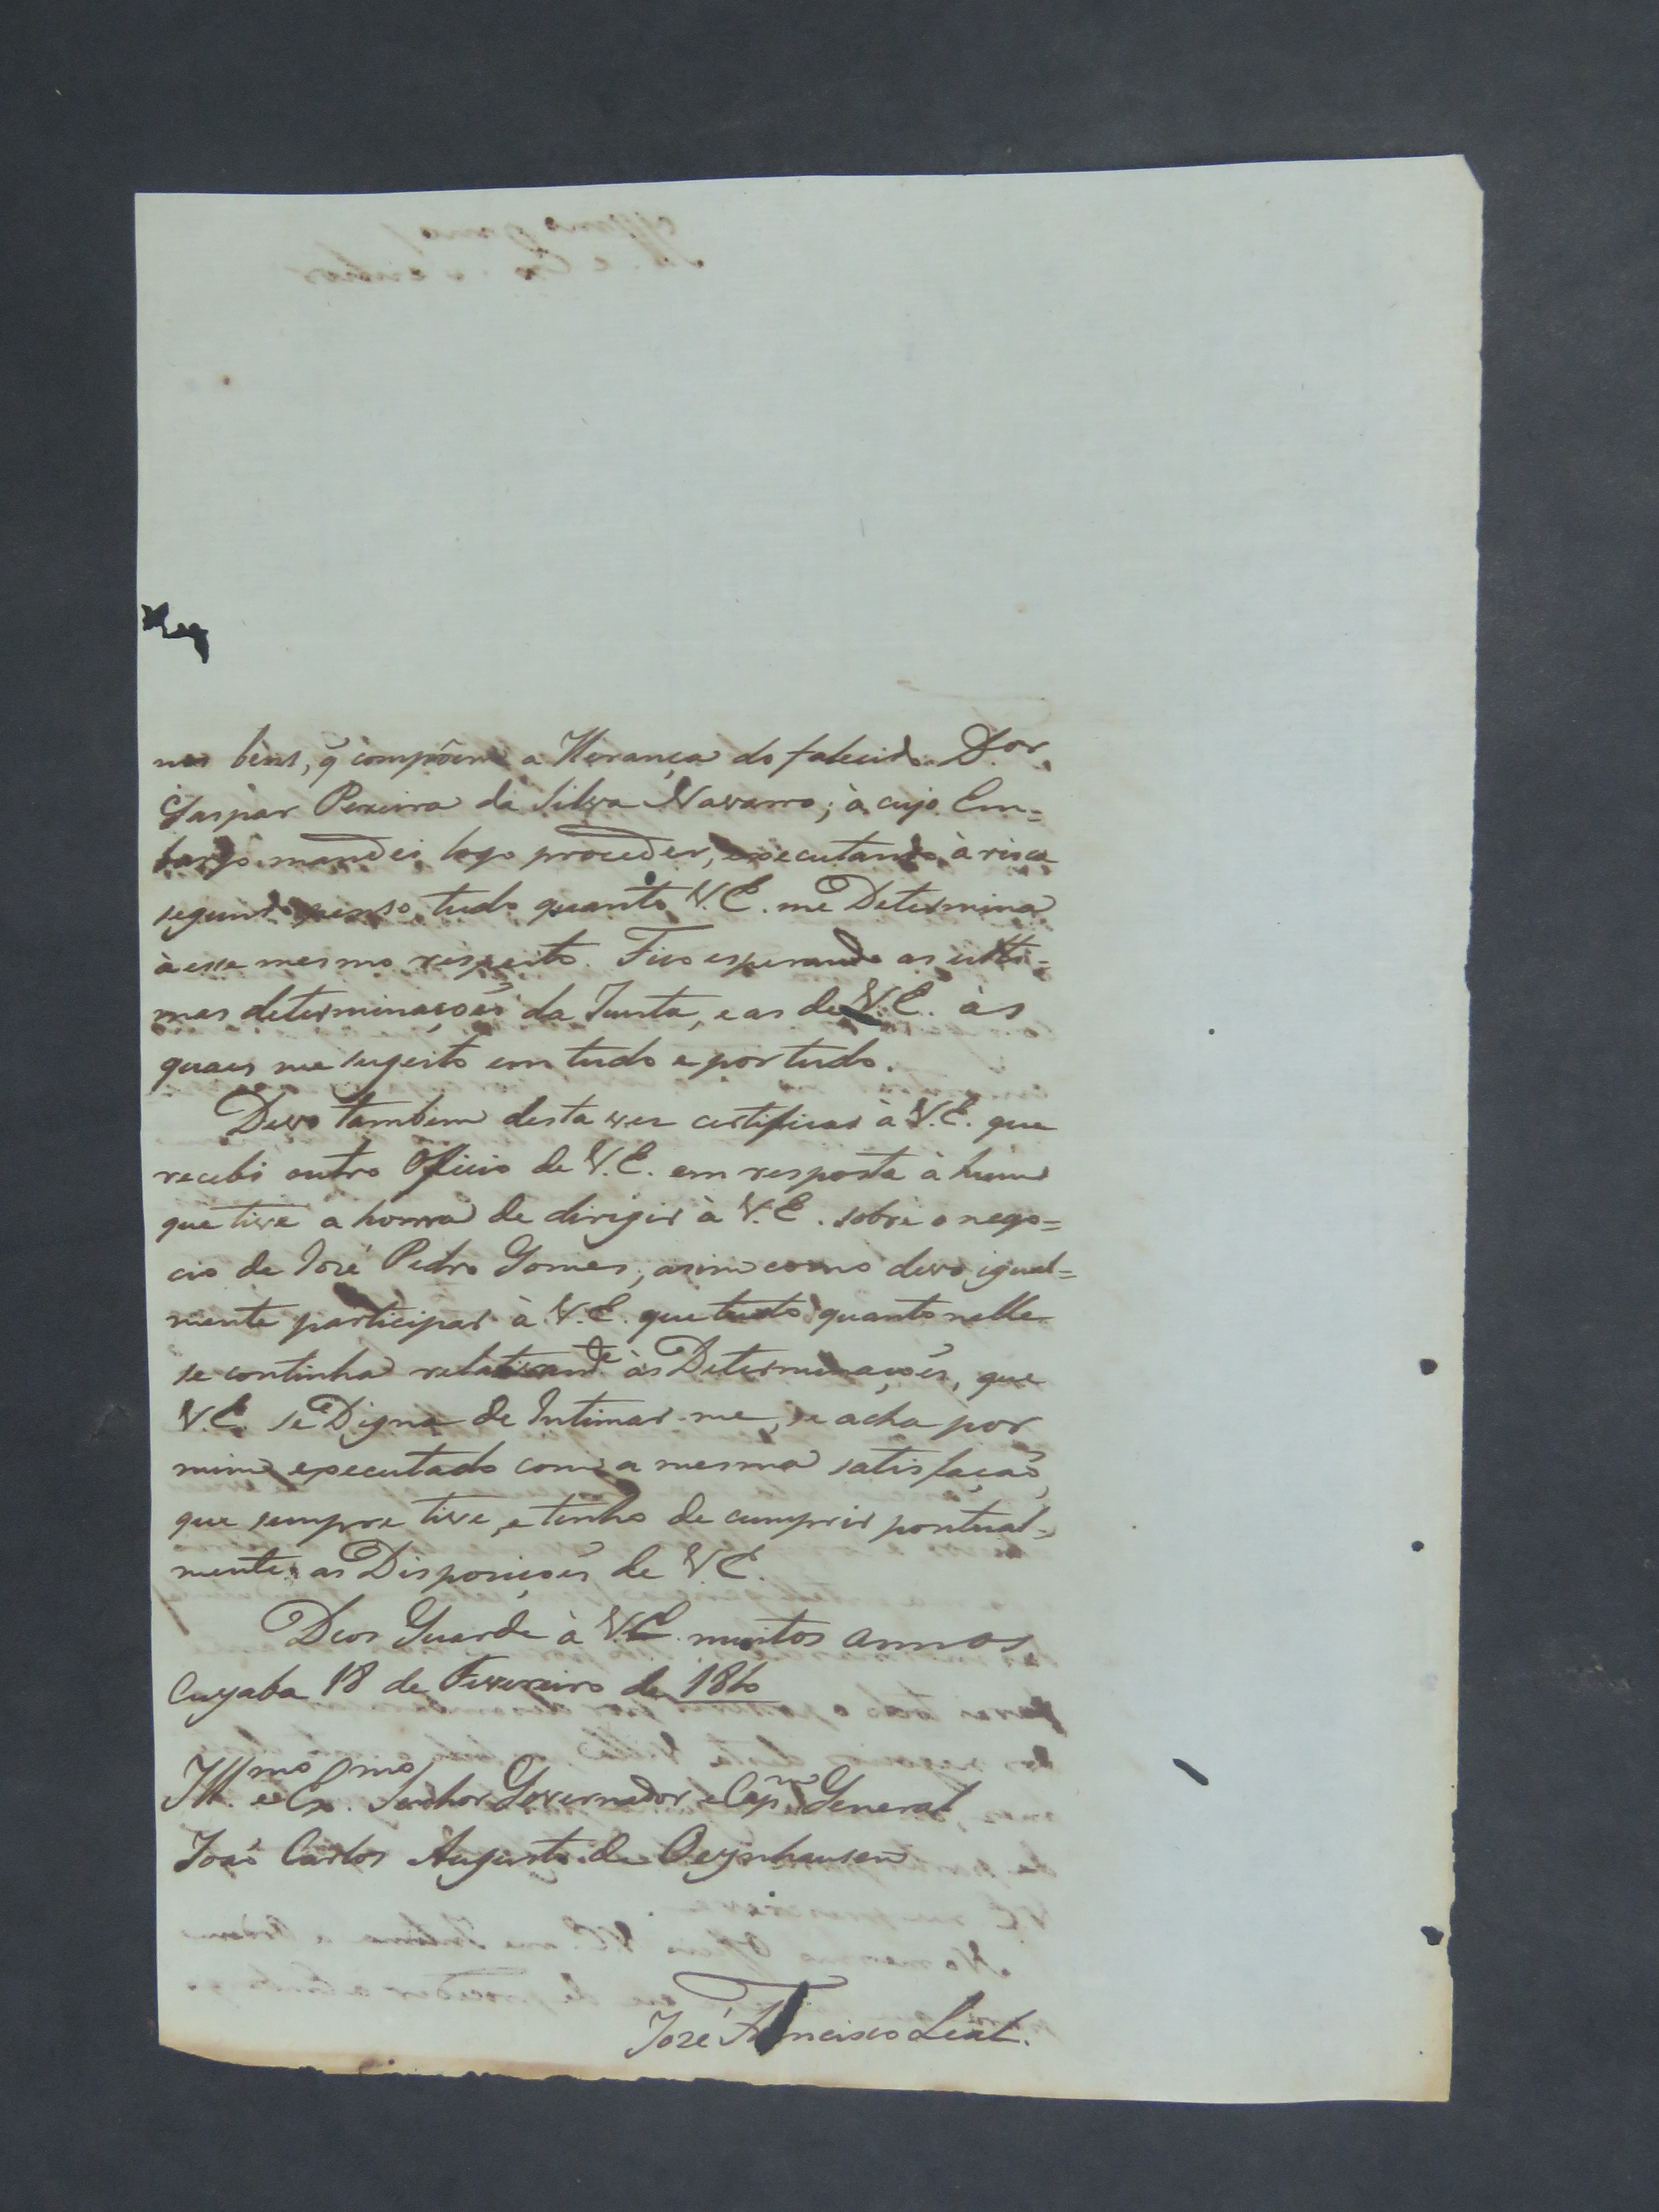 nos bens, q̃ compõem a Herança do falecido D.or
Gaspar Pereira da Silva Navarro; à cujo Em=
bargo mandei logo proceder, executando à risca
segundo penso, tudo quanto V.E. me Determina
à esse mesmo respeito. Fico esperando as ulti=
mas determinaçoẽs da Junta, e as de V.E. às
quaes me sugeito em tudo e por tudo.
Devo tambem desta vez certificar à V.E. que
recebi outro Oficio de V.E. em resposta à hum
que tive a honra de dirigir à V.E. sobre o nego=
cio de José Pedro Gomes; asim como devo igual=
mente participar à V.E. que tudo quanto nelle
se continha relativam.te às Determinaçoẽs, que
V.E. se Digna de Intimar-me, se acha por
mim executado com a mesma satisfaçaõ,
que sempre tive, e tenho de cumprir pontual=
mente as Disposiçoẽs de V.E.
Deos Guarde à V.E. muitos annos
Cuyaba 18 de Fevereiro de 1810
Ill.mo e Ex.mo Senhor Governador e Cap.m General
Joaõ Carlos Augusto de Oeynhausen
José Francisco Leal.